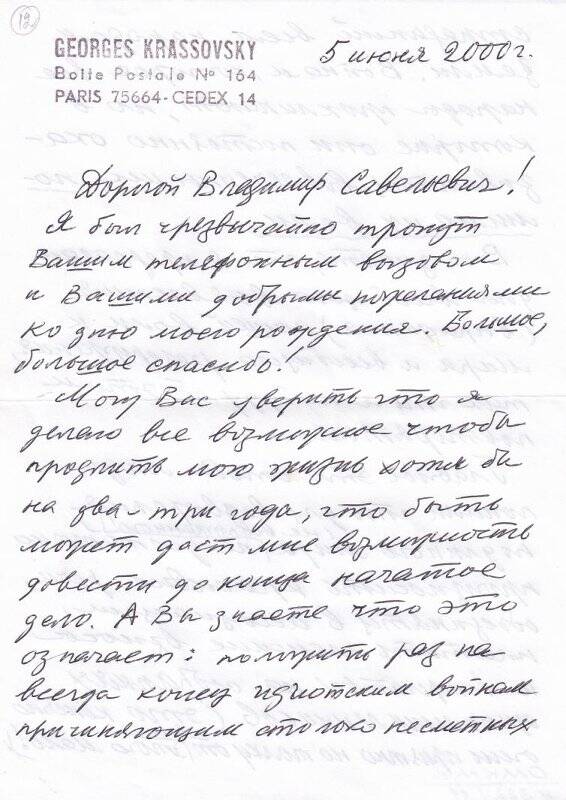 12
GEORGES KRASSOVSKY
Boite Postale Nº 164
PARIS 75664-CEDEX 14
5 июня 2000г.
Дорогой Владимир Савельевич!
Я был чрезвычайно тронут
Вашим телефонным вызовом
и Вашими добрыми пожеланиями
ко дню моего рождения. Большое,
большое спасибо!
Могу Вас уверить что я
делаю все возможное чтобы
продлить мою жизнь хотя бы
на два-три года, что быть
может даст мне возможность
довести до конца начатое
дело. А Вы знаете что это
означает: положить раз на
всегда конец идиотским войнам
причиняющим столько несметных